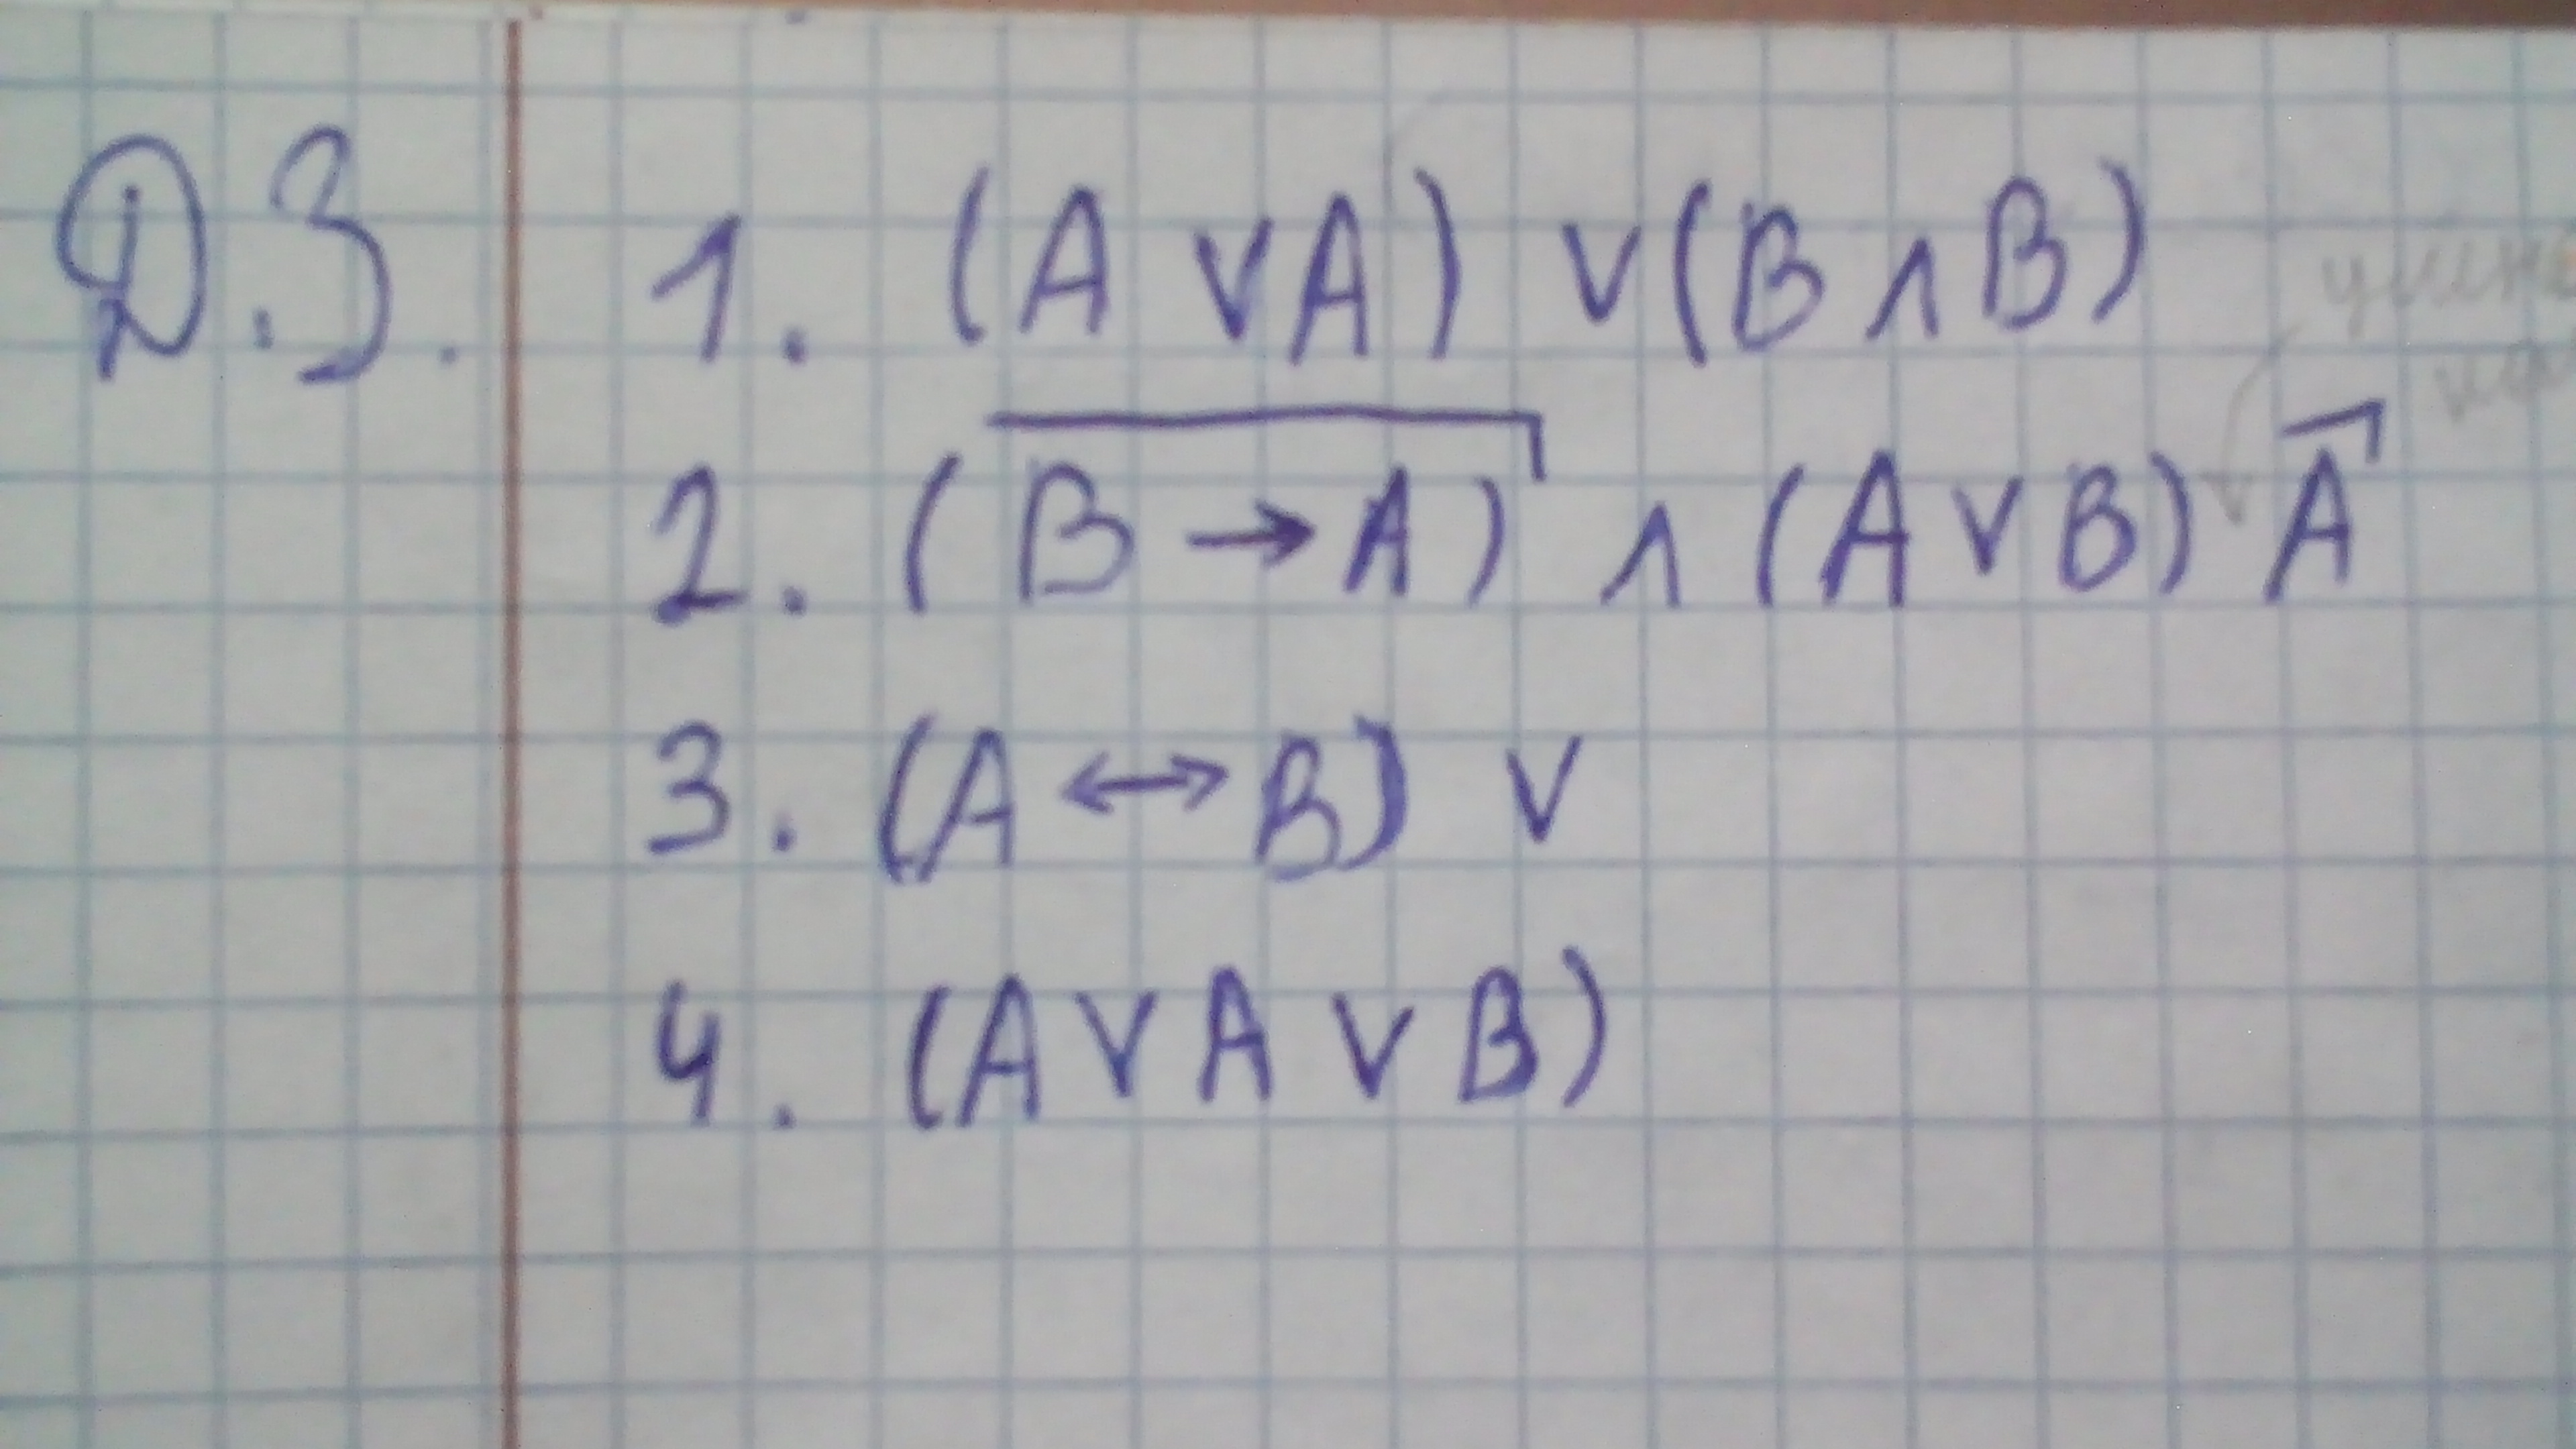 Д.З. 1. (A ∨ A) ∨ (B ∧ B)
2. (B → A)‾ ∧ (A ∨ B) A̅
3. (A ↔ B) ∨
4. (A ∨ A ∨ B)